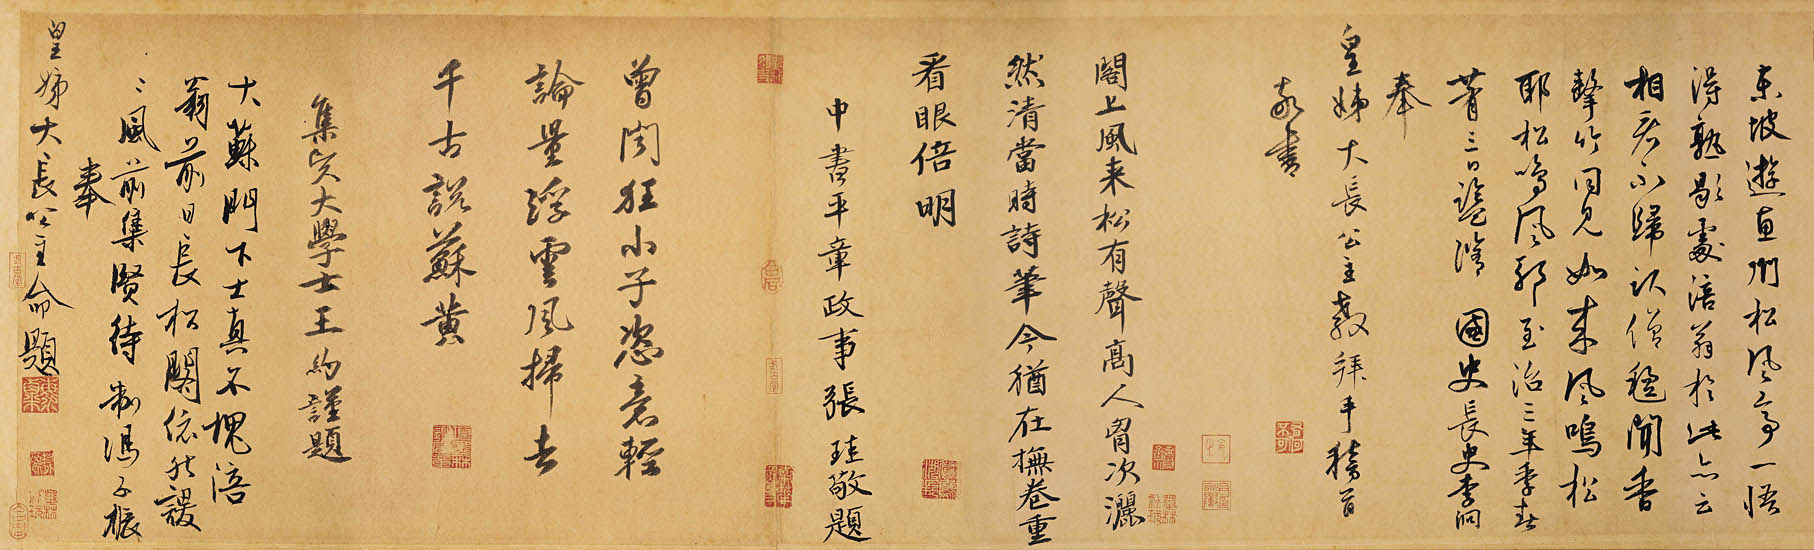 東坡遊惠州松風亭一悟
得熟歇處涪翁於此亦云
相君不歸僧聞香
擊竹同見如來風鳴松
耶松鳴風耶至治三年季春
三日 國史長史李洞
奉
皇姊大長公主教拜手稽首
敬書
閣上風来松有聲高人胷次灑
然清當時詩筆今猶在撫卷重
看眼倍明
中書平章政事張珪敬題
曾聞狂小子恣意輕
論量浮雲風掃去
千古説蘇黄
集賢大學士王約謹題
大蘇門下士真不愧涪
翁前日長松閣依然謖
〻風前集賢待制馮子振
奉
皇姊大長公主命題